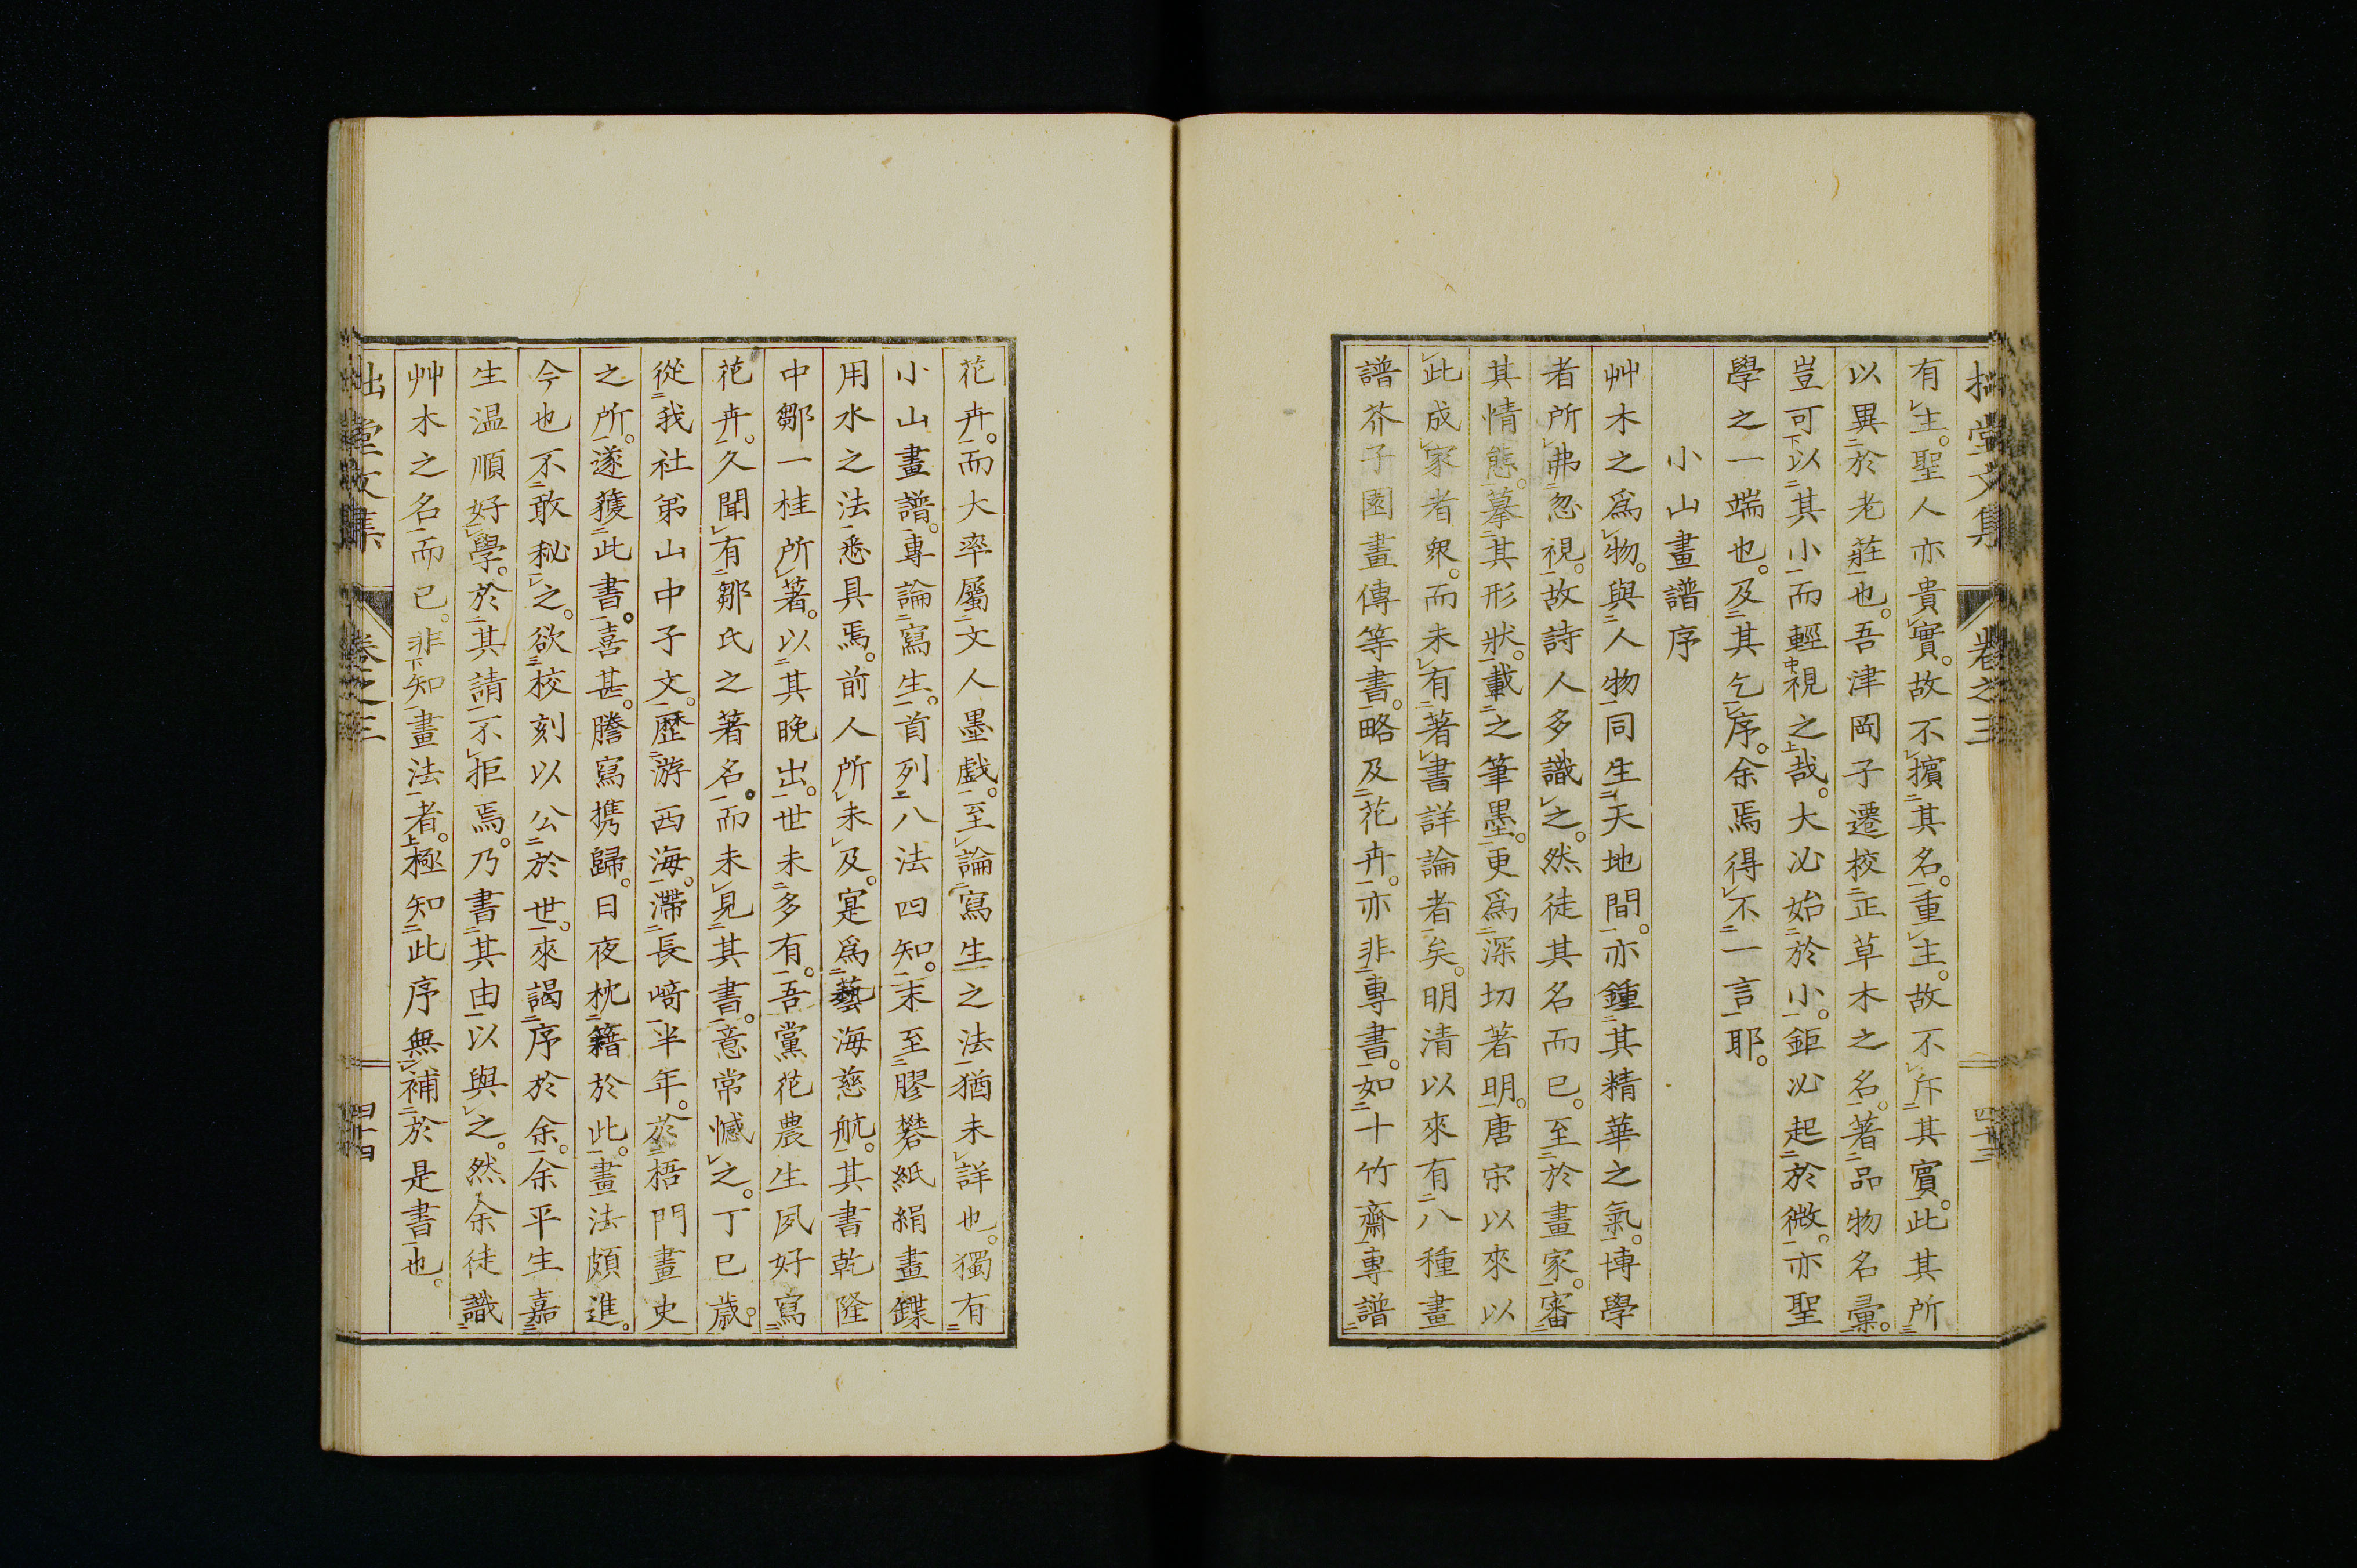 拙堂文集 卷之三 四十三
有主。聖人亦貴實。故不擯其名。重主。故不斥其實。此其所
以異於老莊也。吾津岡子遷校正草木之名。著品物名彙。
豈可以其小而輕視之哉。大必始於小。鉅必起於微。亦聖
學之一端也。及其乞序。余焉得不一言耶。
小山畫譜序
艸木之爲物。與人物同生天地間。亦鍾其精華之氣。博學
者所弗忽視。故詩人多識之。然徒其名而已。至於畫家。審
其情態。摹其形狀。載之筆墨。更爲深切著明。唐宋以來以
此成家者衆。而未有著書詳論者矣。明清以來有八種畫
譜芥子園畫傳等書。略及花卉。亦非專書。如十竹齋專譜
花卉。而大率屬文人墨戲。至論寫生之法。猶未詳也。獨有
小山畫譜。專論寫生。首列八法四知。末至膠礬紙絹畫鍱
用水之法。悉具焉。前人所未及。寔爲藝海慈航。其書乾隆
中鄒一桂所著。以其晚出。世未多有。吾黨花農生夙好寫
花卉。久聞有鄒氏之著名。而未見其書。意常憾之。丁巳歲。
從我社弟山中子文。歷游西海。滯長崎半年。於梧門畫史
之所。遂獲此書。喜甚。謄寫携歸。日夜枕籍於此。畫法頗進。
今也不敢秘之。欲校刻以公於世。來謁序於余。余平生嘉
生温順好學。於其請不拒焉。乃書其由以與之。然余徒識
艸木之名而已。非知畫法者。極知此序無補於是書也。
拙堂文集 卷之三 四十四